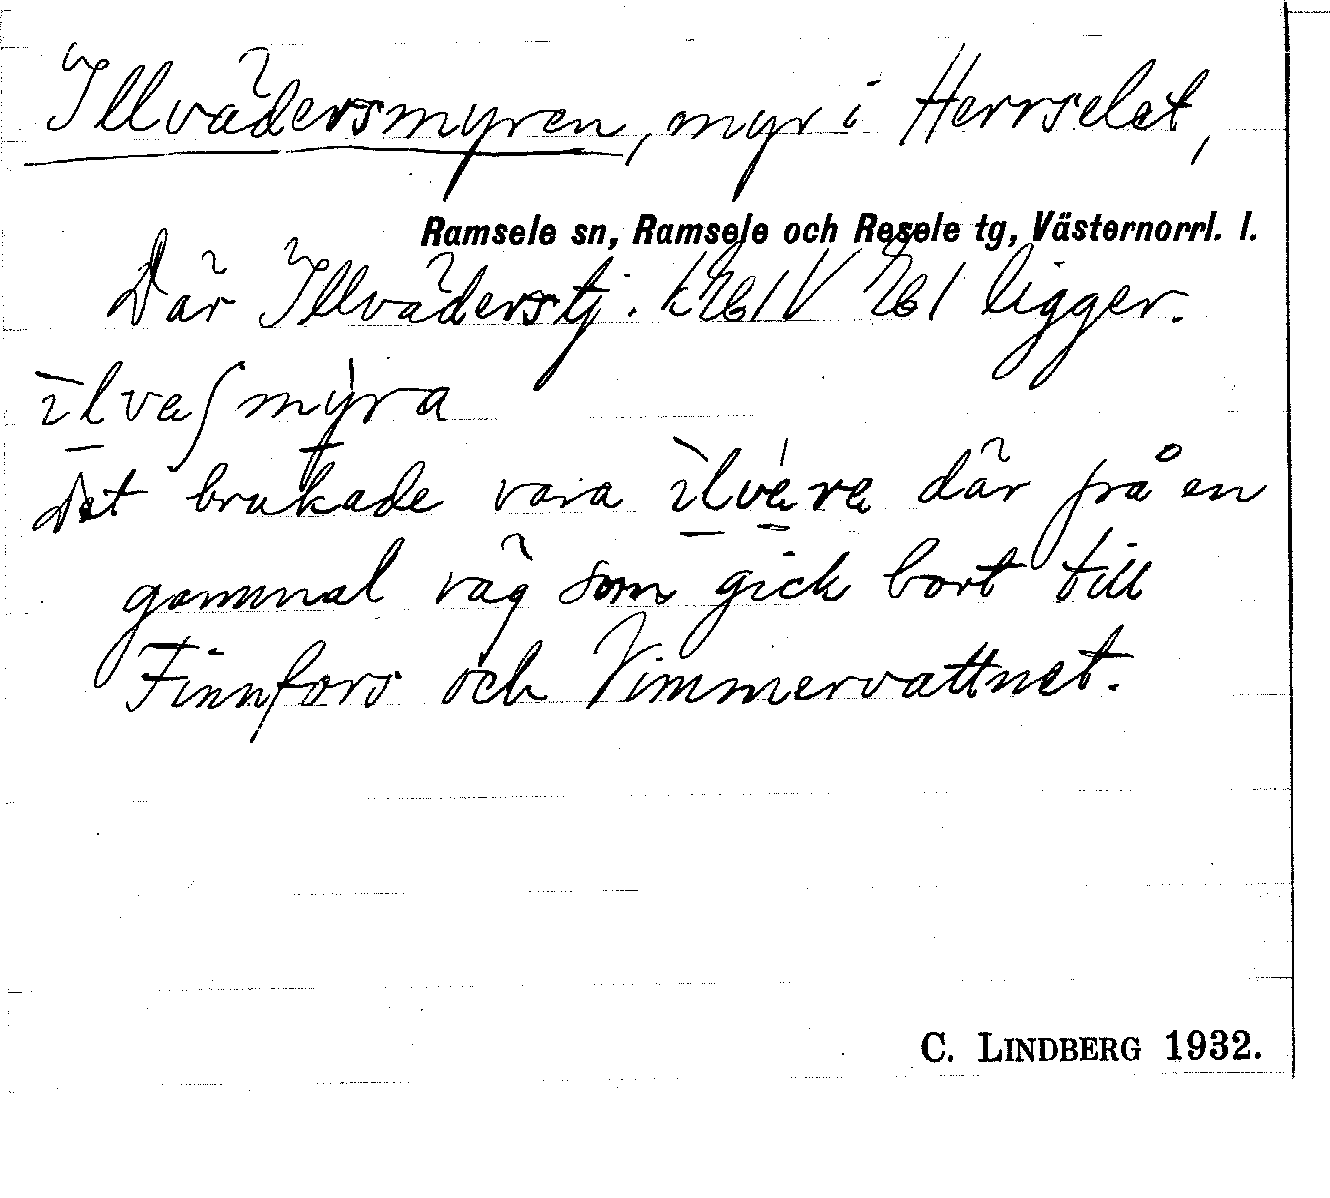 Illvädersmyren, myr i Herrselet,
Ramsele sn, Ramsele och Resele tg, Västernorrl. l.
Där Illväderstj. ligger.
ìlvaʃmỳra
Det brukade vara ìlvéra där på en
gammal väg som gick bort till
Finnfors och Vimmervattnet.
C. LINDBERG 1932.